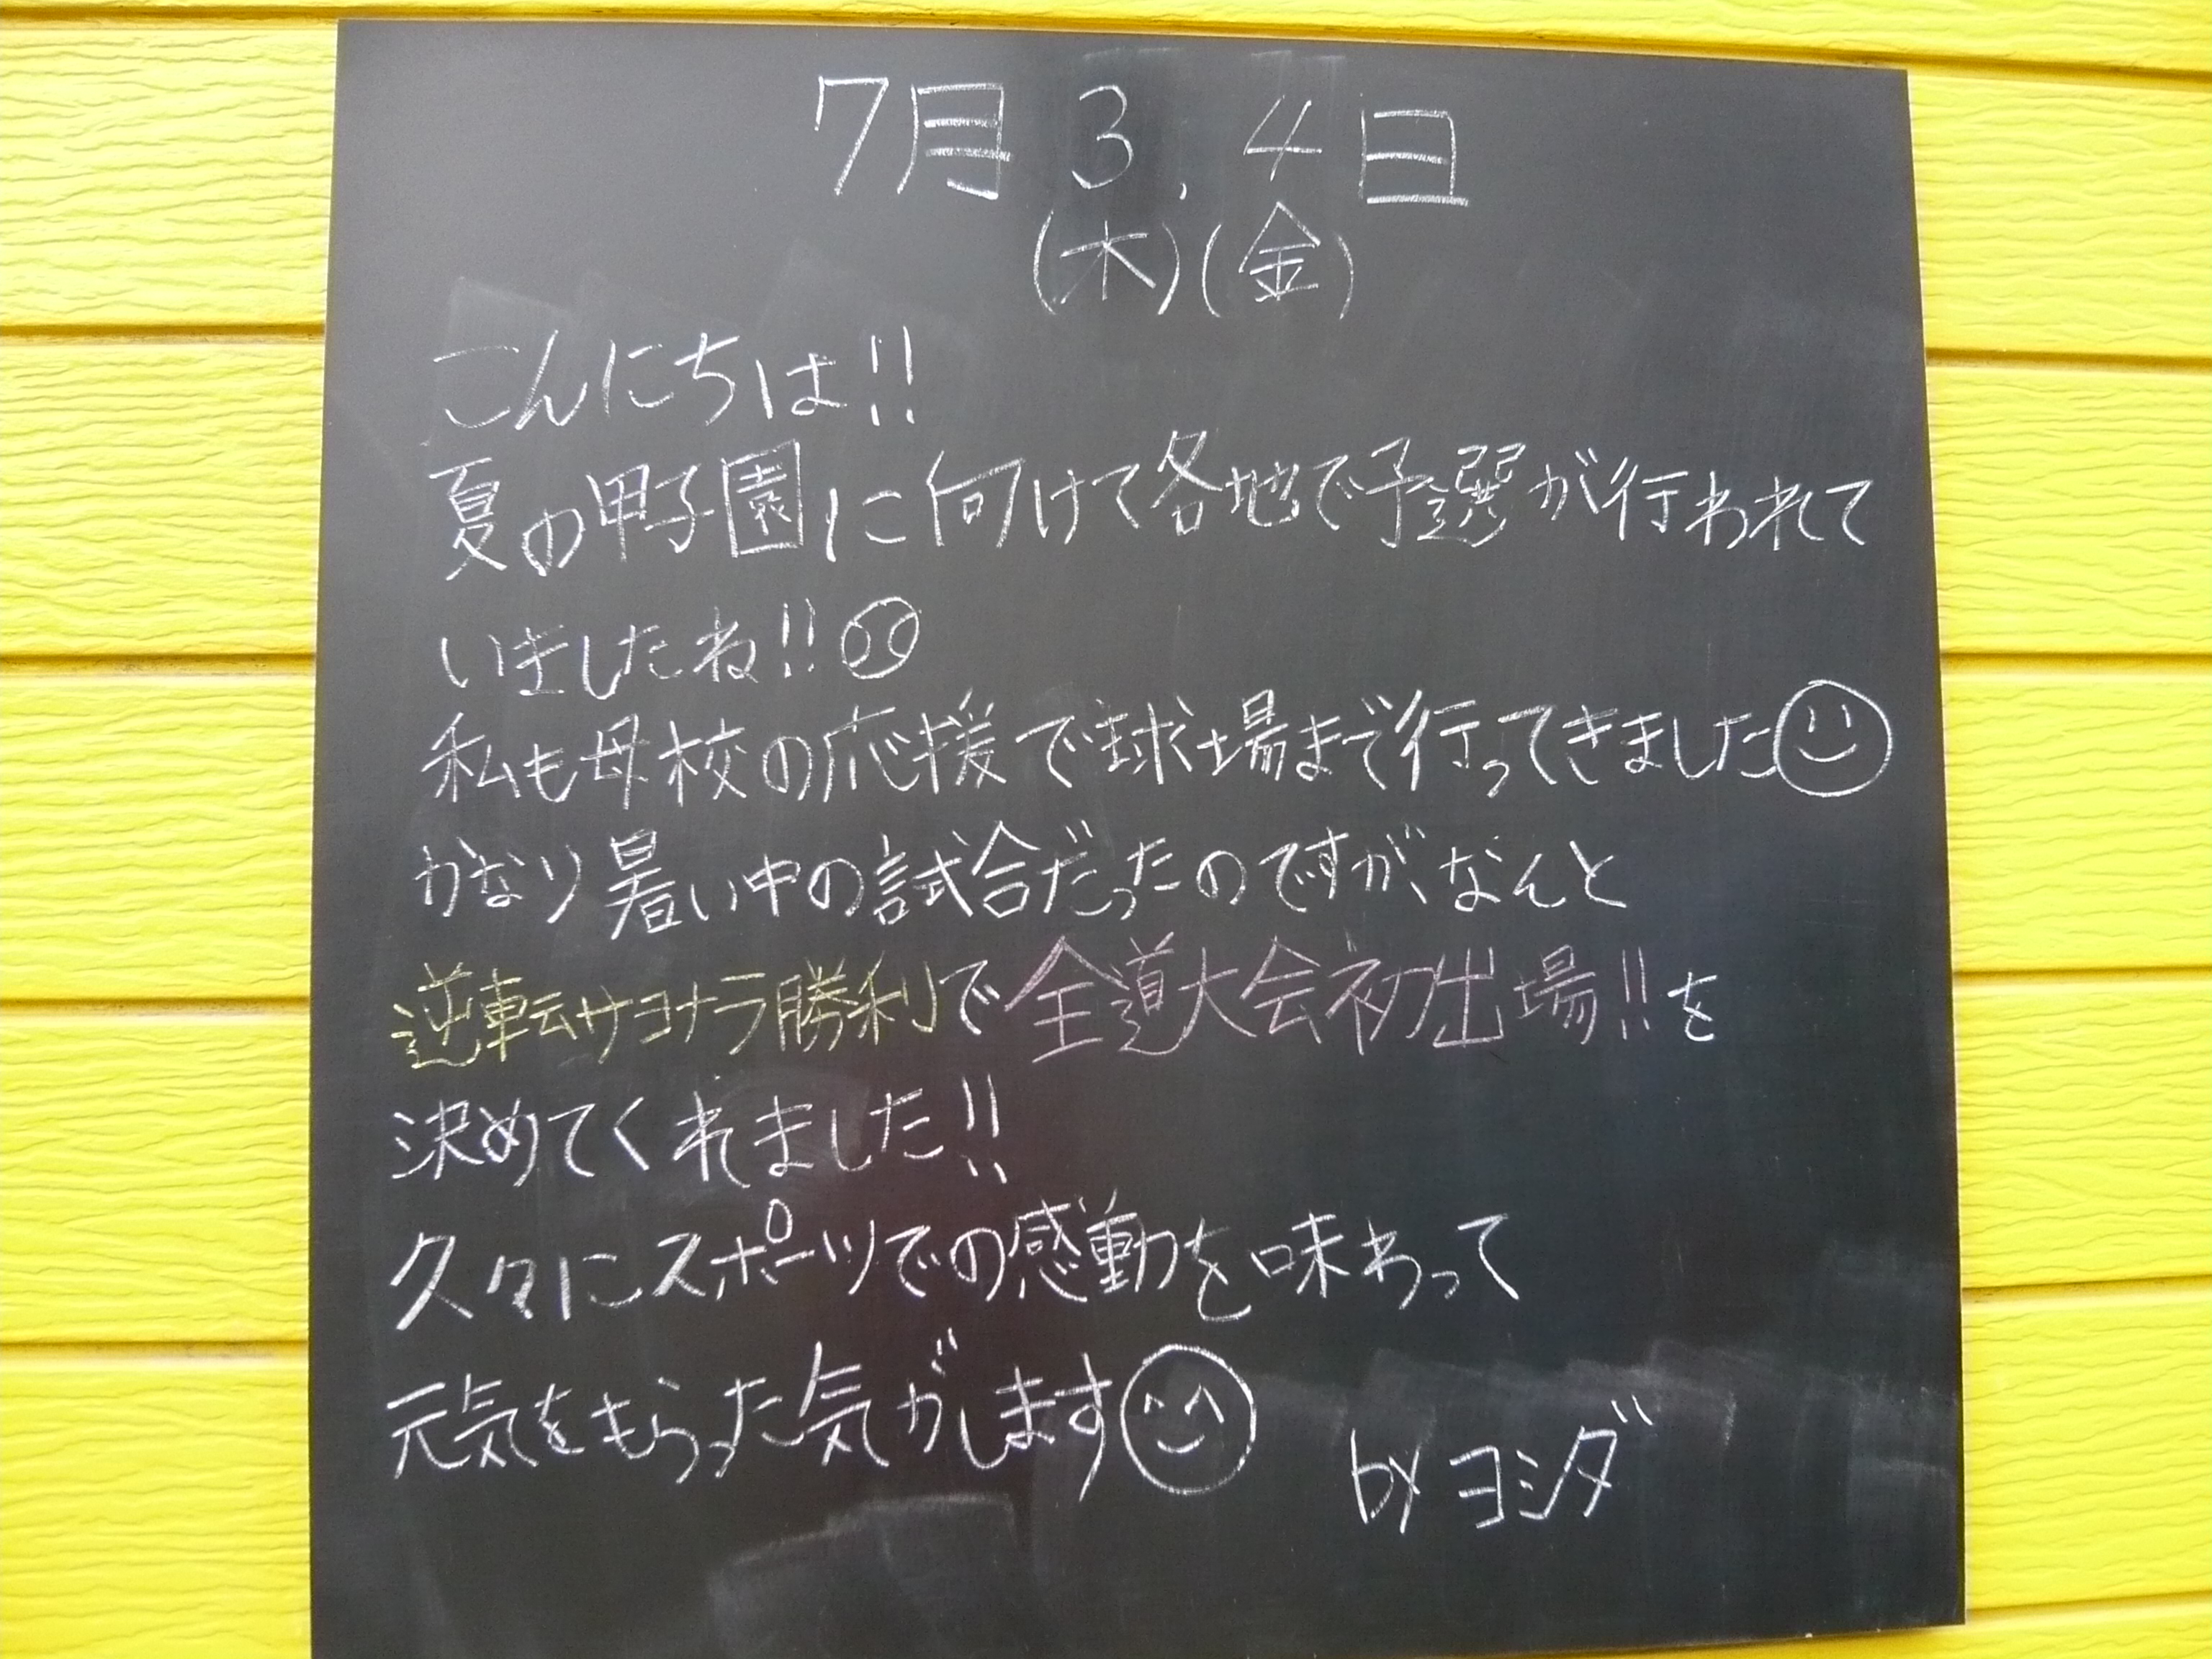 7月3,4日
(木)(金)
こんにちは!!
夏の甲子園に向けて各地で予選が行われて
いましたね!!
私も母校の応援で球場まで行ってきました
かなり暑い中の試合だったのですが、なんと
逆転サヨナラ勝利で全道大会初出場!!を
決めてくれました!!
久々にスポーツでの感動を味わって
元気をもらった気がします
by ヨシダ